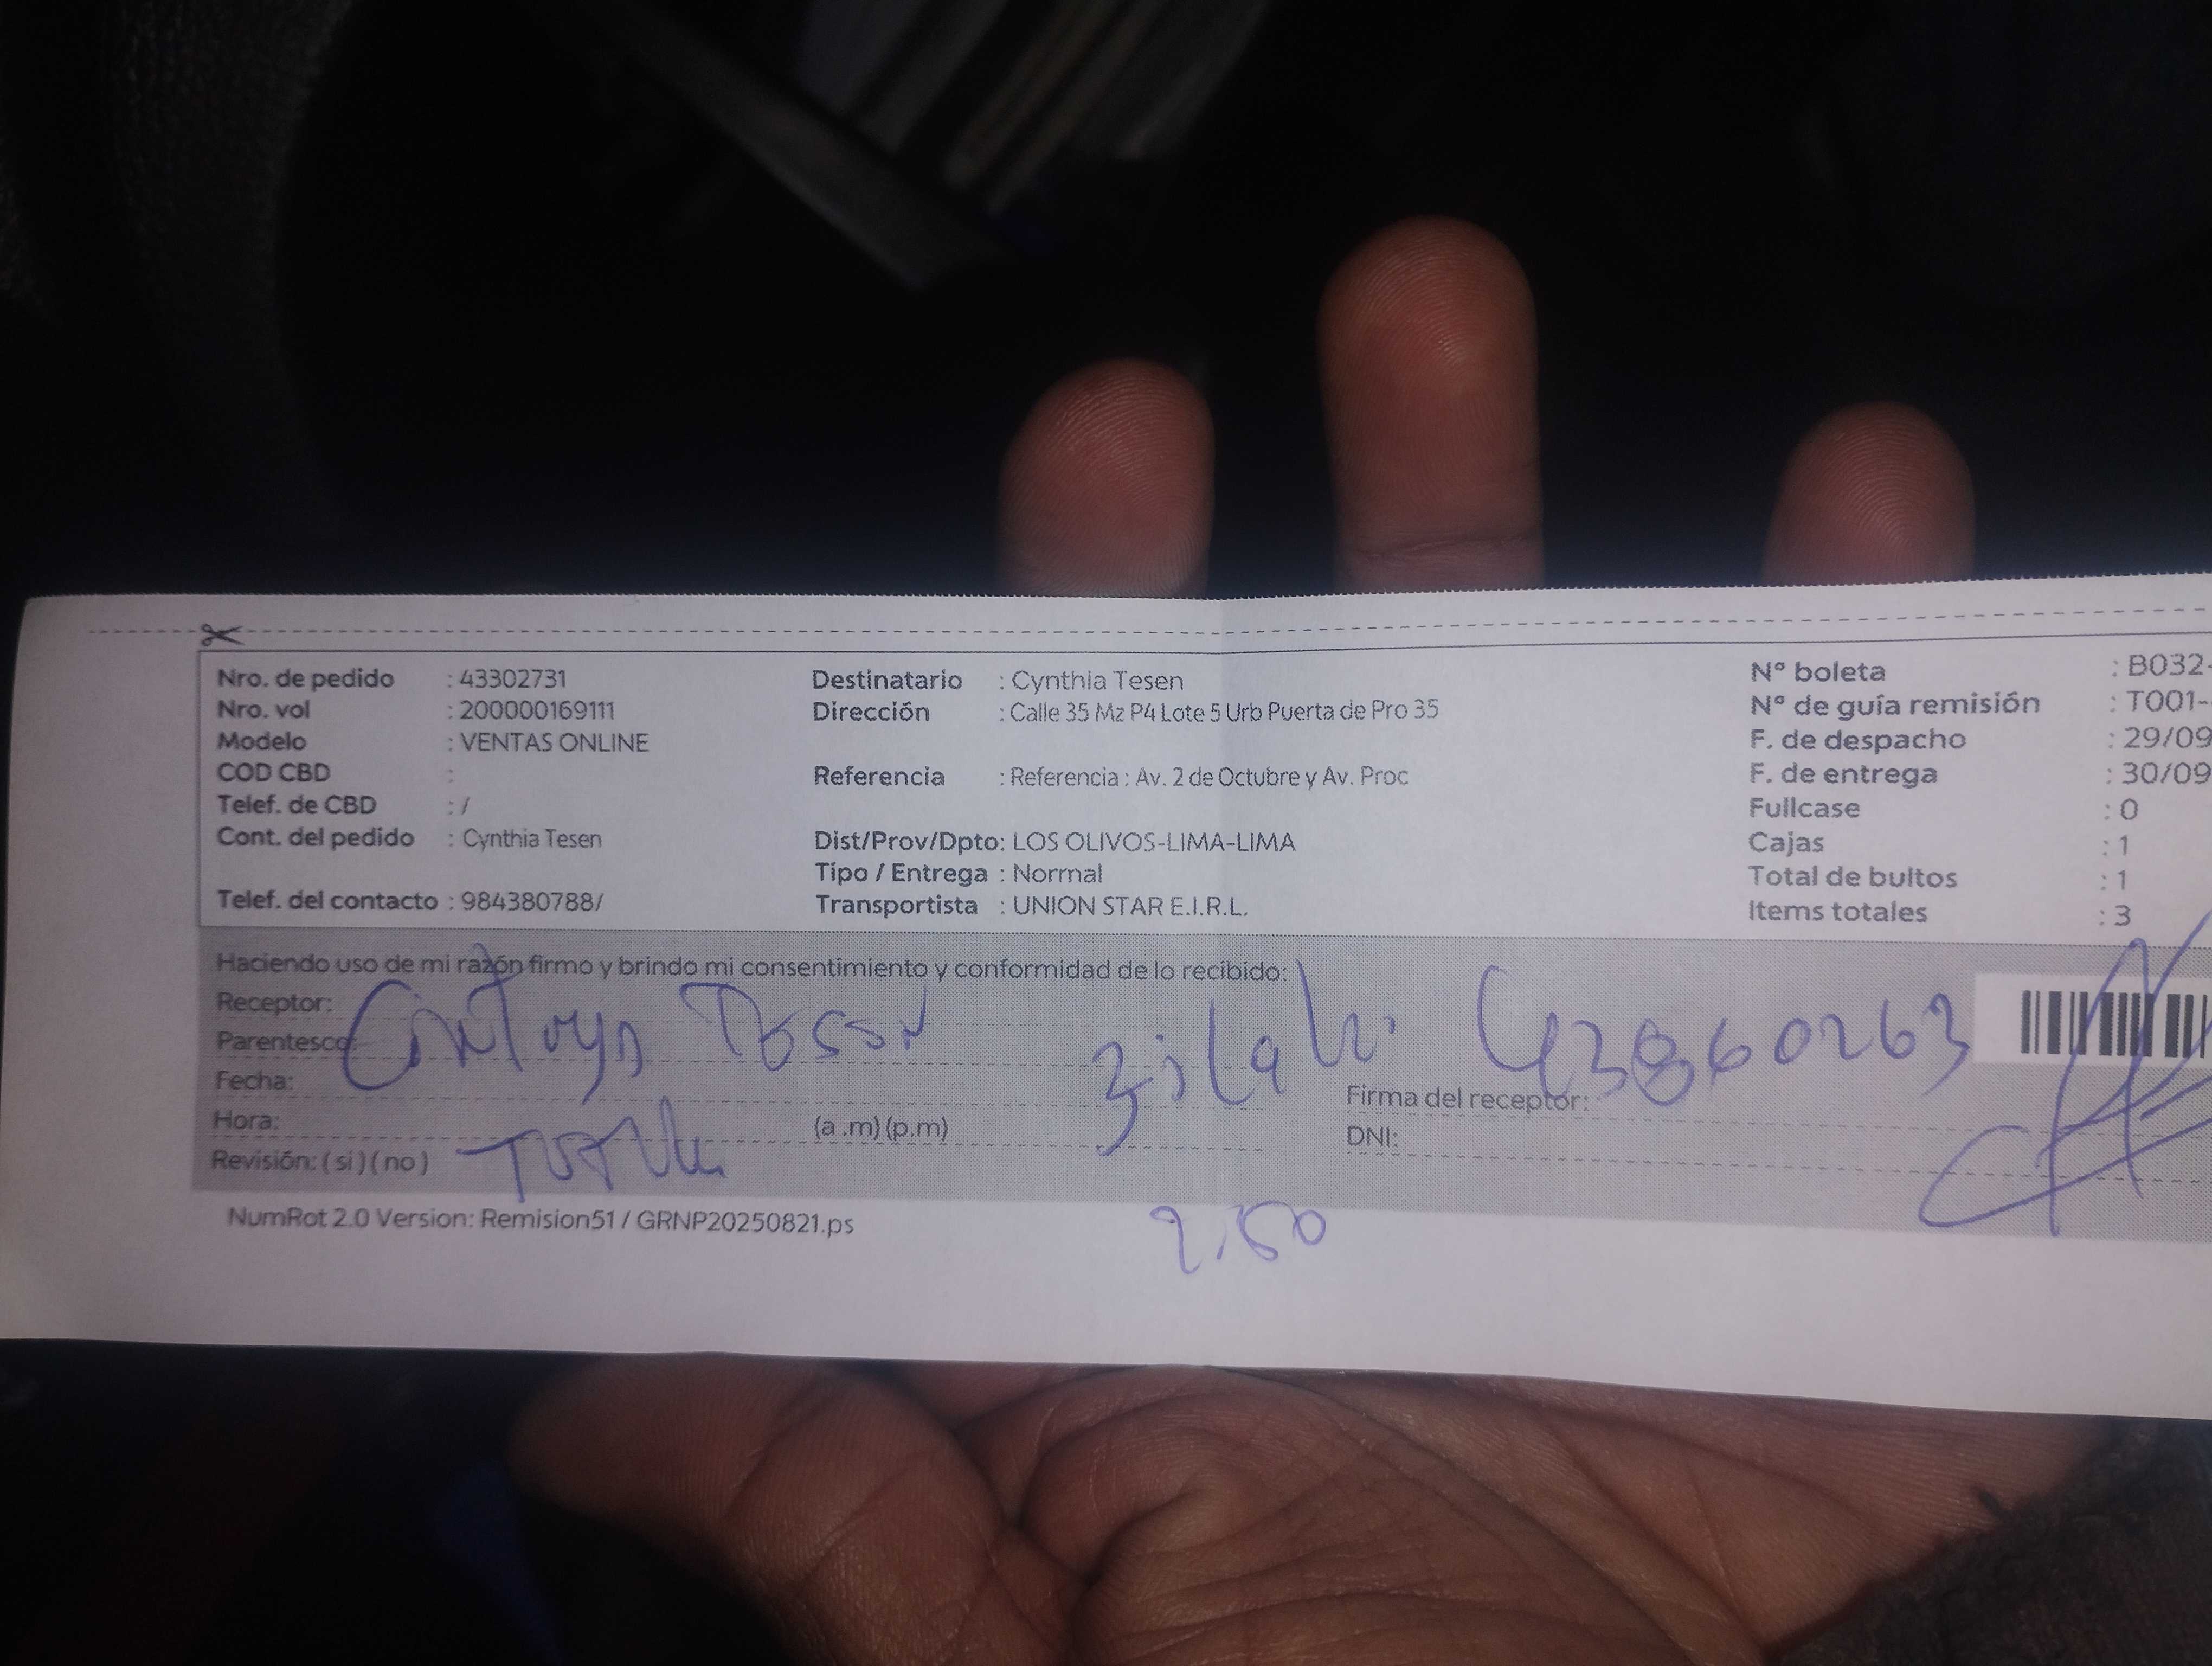 Nro. de pedido : 43302731
Nro. vol : 200000169111
Modelo : VENTAS ONLINE
COD CBD :
Telef. de CBD : /
Cont. del pedido : Cynthia Tesen
Telef. del contacto : 984380788/
Destinatario : Cynthia Tesen
Dirección : Calle 35 Mz P4 Lote 5 Urb Puerta de Pro 35
Referencia : Referencia : Av. 2 de Octubre y Av. Proc
Dist/Prov/Dpto: LOS OLIVOS-LIMA-LIMA
Tipo / Entrega : Normal
Transportista : UNION STAR E.I.R.L.
N° boleta : B032-
N° de guía remisión : T001-
F. de despacho : 29/09
F. de entrega : 30/09
Fullcase : 0
Cajas : 1
Total de bultos : 1
Items totales : 3
Haciendo uso de mi razón firmo y brindo mi consentimiento y conformidad de lo recibido:
Receptor:
Parentesco:
Fecha:
Hora: (a .m) (p.m)
Revisión: ( si ) ( no )
43860263
Firma del receptor:
DNI:
2.50
NumRot 2.0 Version: Remision51 / GRNP20250821.ps